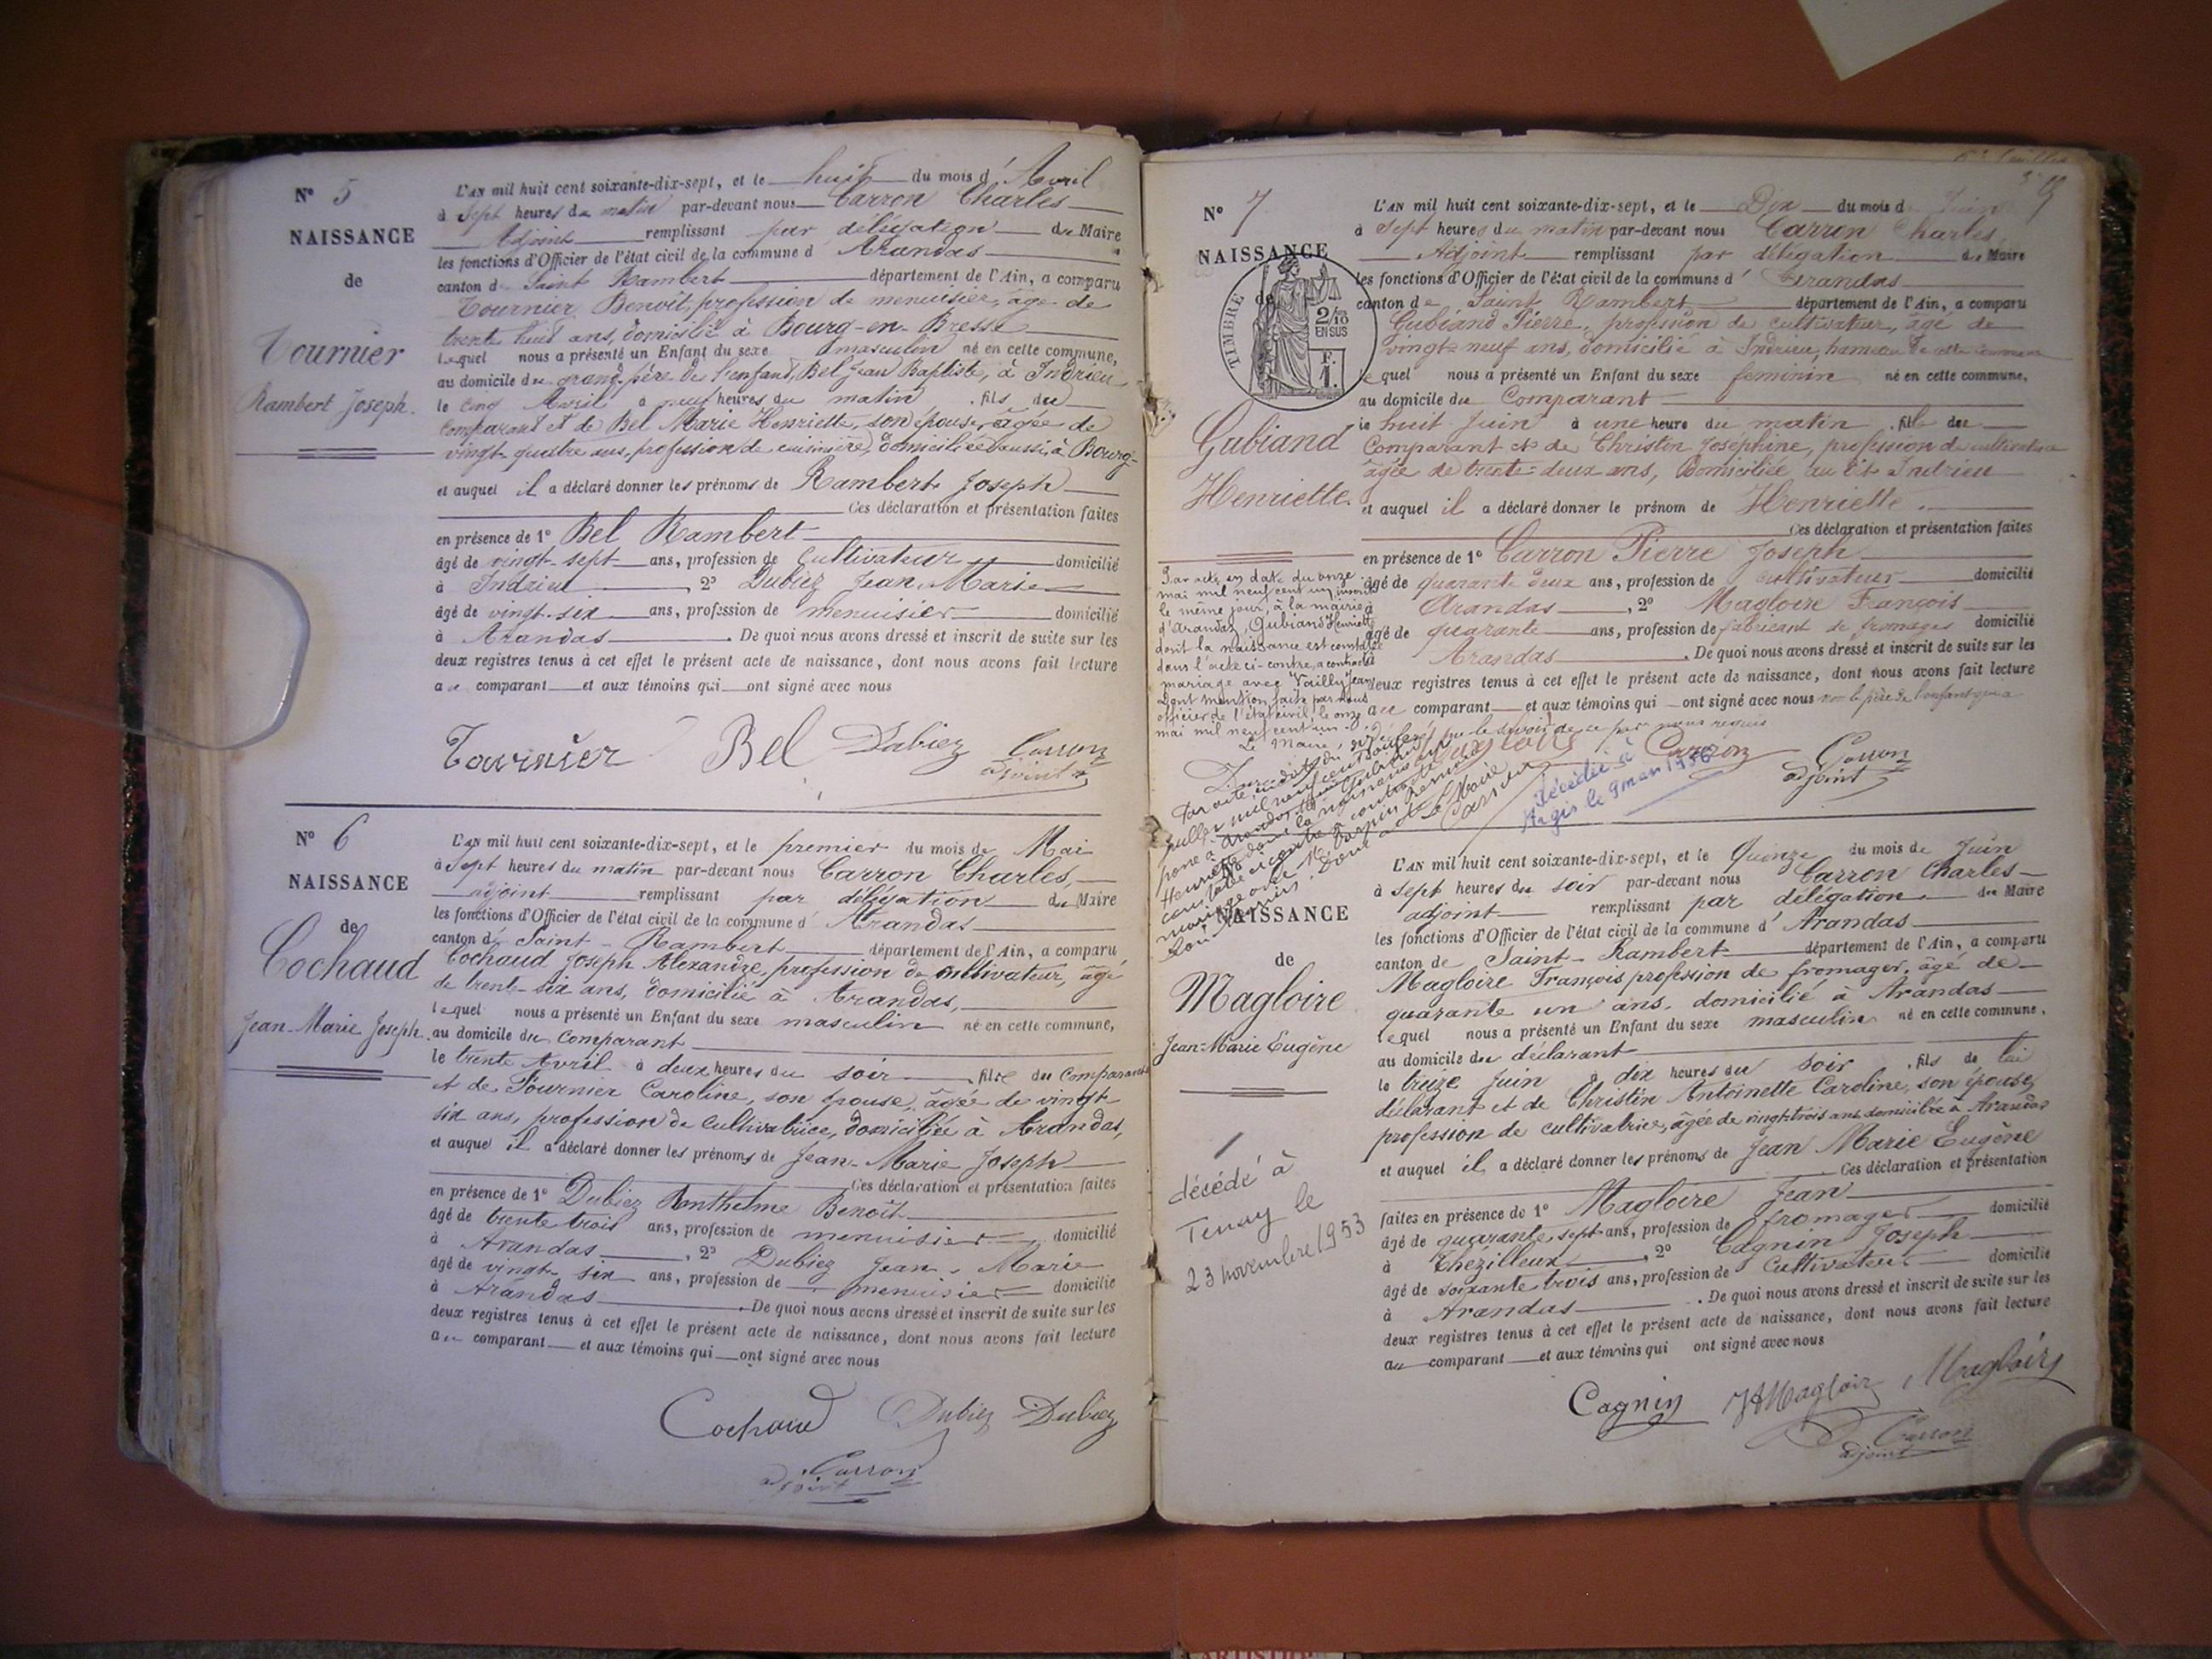 N° 5
NAISSANCE
de
Tournier
Rambert Joseph.
L'AN mil huit cent soixante-dix-sept, et le huit du mois d'Avril
à Sept heures du matin par-devant nous Carron Charles
Adjoint remplissant par délégation du Maire
les fonctions d'Officier de l'état civil de la commune d'Arandas
canton de Saint Rambert département de l'Ain, a comparu
Tournier Benoit, profession de menuisier, âgé de
trente huit ans, domicilié à Bourg-en-Bresse
lequel nous a présenté un Enfant du sexe masculin né en cette commune,
au domicile du grand-père de l'enfant, Bel Jean Baptiste, à Indrieu
le cinq Avril à neuf heures du matin, fils du
Comparant et de Bel Marie Henriette, son épouse, âgée de
vingt-quatre ans, profession de cuisinière, domiciliée aussi à Bourg-
et auquel il a déclaré donner les prénoms de Rambert Joseph
Ces déclaration et présentation faites
en présence de 1° Bel Rambert
âgé de vingt-sept ans, profession de Cultivateur domicilié
à Indrieu, 2° Dubiez Jean Marie
âgé de vingt-six ans, profession de menuisier domicilié
à Arandas. De quoi nous avons dressé et inscrit de suite sur les
deux registres tenus à cet effet le présent acte de naissance, dont nous avons fait lecture
au comparant et aux témoins qui ont signé avec nous
Tournier Bel Dubiez Carron
adjoint
N° 6
NAISSANCE
de
Cochaud
Jean-Marie Joseph.
L'AN mil huit cent soixante-dix-sept, et le premier du mois de Mai
à Sept heures du matin par-devant nous Carron Charles,
adjoint remplissant par délégation du Maire
les fonctions d'Officier de l'état civil de la commune d'Arandas
canton de Saint-Rambert département de l'Ain, a comparu
Cochaud Joseph Alexandre, profession de cultivateur, âgé
de trente-six ans, domicilié à Arandas,
lequel nous a présenté un Enfant du sexe masculin né en cette commune,
au domicile du Comparant
le trente Avril à deux heures du soir, fils du Comparant
et de Fournier Caroline, son épouse, âgée de vingt-
six ans, profession de Cultivatrice, domiciliée à Arandas,
et auquel il a déclaré donner les prénoms de Jean-Marie Joseph
Ces déclaration et présentation faites
en présence de 1° Dubiez Anthelme Benoît
âgé de trente trois ans, profession de menuisier, domicilié
à Arandas, 2° Dubiez Jean-Marie
âgé de vingt-six ans, profession de menuisier domicilié
à Arandas. De quoi nous avons dressé et inscrit de suite sur les
deux registres tenus à cet effet le présent acte de naissance, dont nous avons fait lecture
au comparant et aux témoins qui ont signé avec nous
Cochaud Dubiez Dubiez
Carron
adjoint
N° 7
NAISSANCE
de
TIMBRE
2/10
EN SUS
F.
1.
Gubiand
Henriette.
L'AN mil huit cent soixante-dix-sept, et le Dix du mois d Juin
à Sept heures du matin par-devant nous Carron Charles,
Adjoint remplissant par délégation du Maire
les fonctions d'Officier de l'état civil de la commune d'Arandas
canton de Saint Rambert département de l'Ain, a comparu
Gubiand Pierre, profession de cultivateur, âgé de
vingt-neuf ans, domicilié à Indrieu, hameau de cette commune
lequel nous a présenté un Enfant du sexe feminin né en cette commune,
au domicile du Comparant
le huit Juin à une heure du matin, fille du
Comparant et de Christin Joséphine, profession de cultivatrice
âgée de trente-deux ans, domiciliée au dit Indrieu
et auquel il a déclaré donner le prénom de Henriette.
Ces déclaration et présentation faites
en présence de 1° Carron Pierre Joseph
âgé de quarante deux ans, profession de cultivateur domicilié
à Arandas, 2° Magloire François
âgé de quarante ans, profession de fabricant de fromages domicilié
à Arandas. De quoi nous avons dressé et inscrit de suite sur les
deux registres tenus à cet effet le présent acte de naissance, dont nous avons fait lecture
au comparant et aux témoins qui ont signé avec nous non le père de l'enfant qui a
déclaré ne le savoir de ce par nous requis
Carron Carron
adjoint
Par acte en date du onze
mai mil neuf cent un inscrit
le même jour, à la mairie
d'Arandas, Gubiand Henriette
dont la naissance est constatée
dans l'acte ci-contre, a contracté
mariage avec Vailly Jean
Dont mention faite par nous
officier de l'état civil, le onze
mai mil neuf cent un.
Le Maire,
Décédée à
Argis le 9 mars 1956
NAISSANCE
de
Magloire
Jean-Marie Eugène
décédé à
Tenay le
23 novembre 1953
L'AN mil huit cent soixante-dix-sept, et le Quinze du mois de Juin
à sept heures du soir par-devant nous Carron Charles
adjoint remplissant par délégation du Maire
les fonctions d'Officier de l'état civil de la commune d'Arandas
canton de Saint-Rambert département de l'Ain, a comparu
Magloire François profession de fromager, âgé de
quarante un ans, domicilié à Arandas
lequel nous a présenté un Enfant du sexe masculin né en cette commune,
au domicile du déclarant
le treize Juin à dix heures du soir, fils de lui
déclarant et de Christin Antoinette Caroline, son épouse,
profession de cultivatrice, âgée de vingt-trois ans domiciliée à Arandas
et auquel il a déclaré donner les prénoms de Jean Marie Eugène
Ces déclaration et présentation
faites en présence de 1° Magloire Jean
âgé de quarante sept ans, profession de fromager domicilié
à Thézilleux, 2° Cagnin Joseph
âgé de soixante trois ans, profession de Cultivateur domicilié
à Arandas. De quoi nous avons dressé et inscrit de suite sur les
deux registres tenus à cet effet le présent acte de naissance, dont nous avons fait lecture
au comparant et aux témoins qui ont signé avec nous
Cagnin Magloire
Carron
adjoint